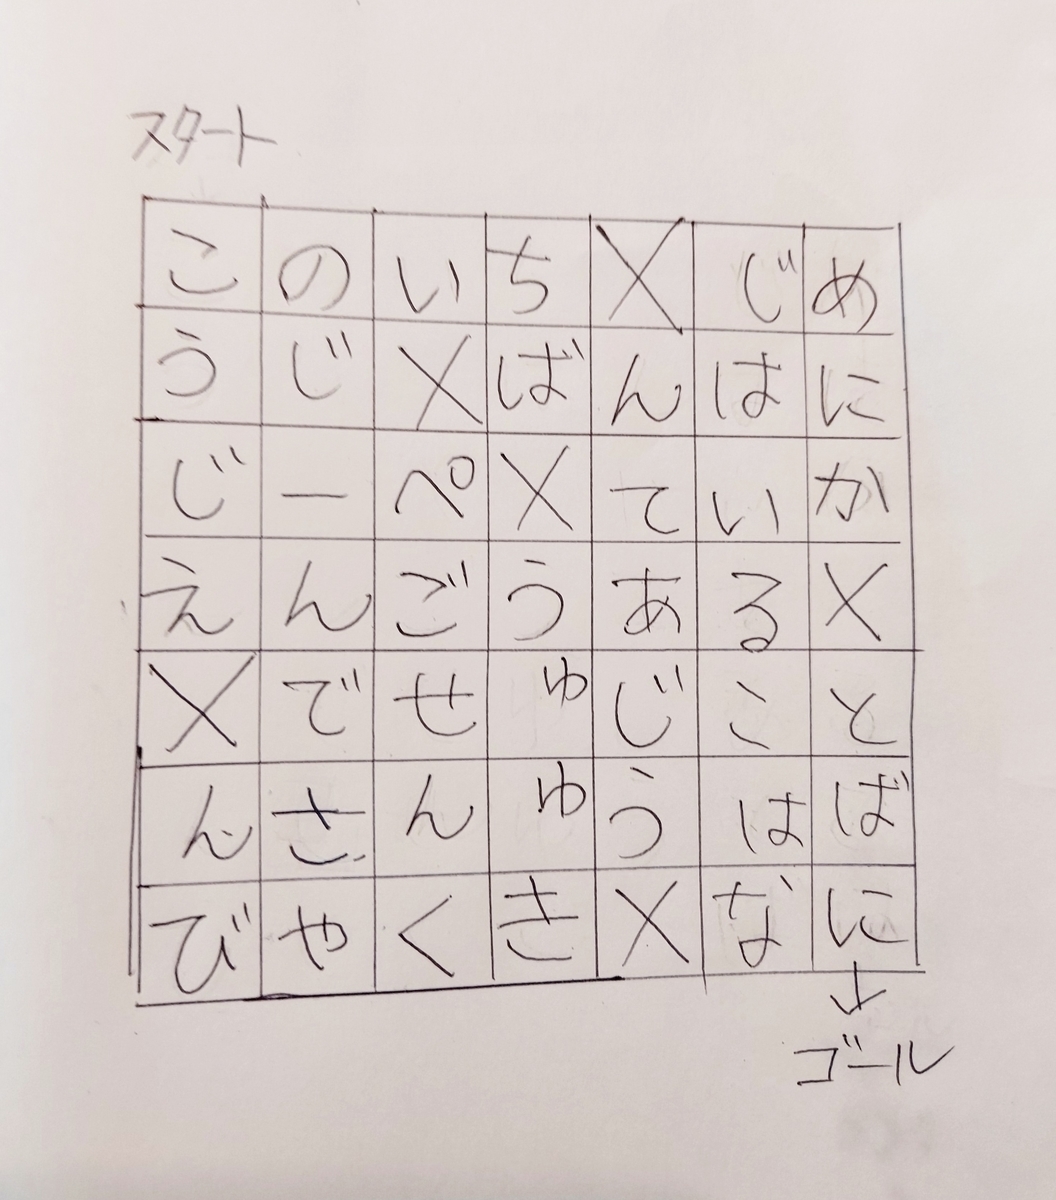 スタート
こ の い ち X じ め
う じ X ば ん は に
じ ー ペ X て い か
え ん ご う あ る X
X で せ ゅ じ こ と
ん ざ ん ゅ う は ば
び や く き X な に
ゴール